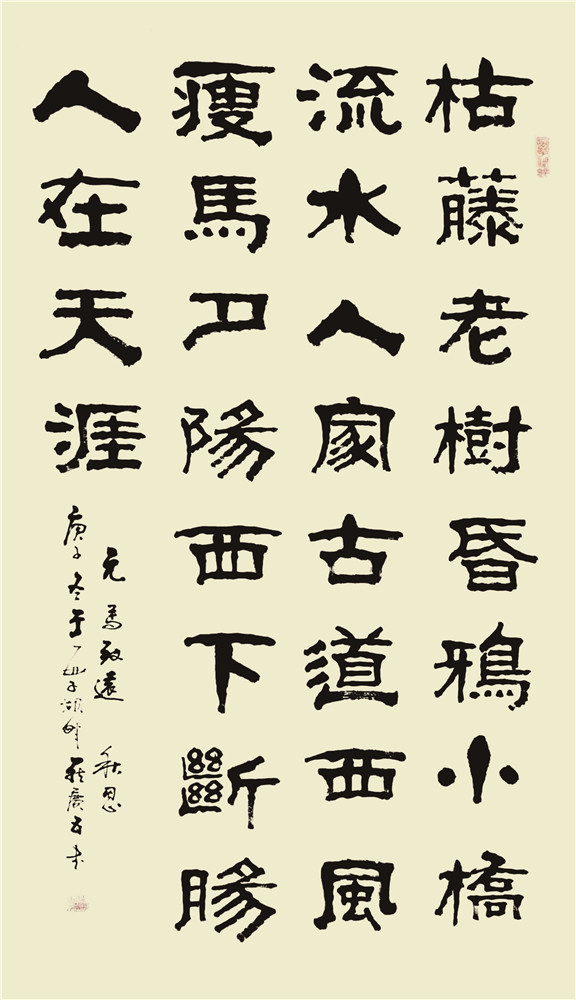 枯藤老樹昏鴉小橋
流水人家古道西風
瘦馬夕陽西下斷腸
人在天涯
元馬致遠 秋思
庚子冬于子湖畔